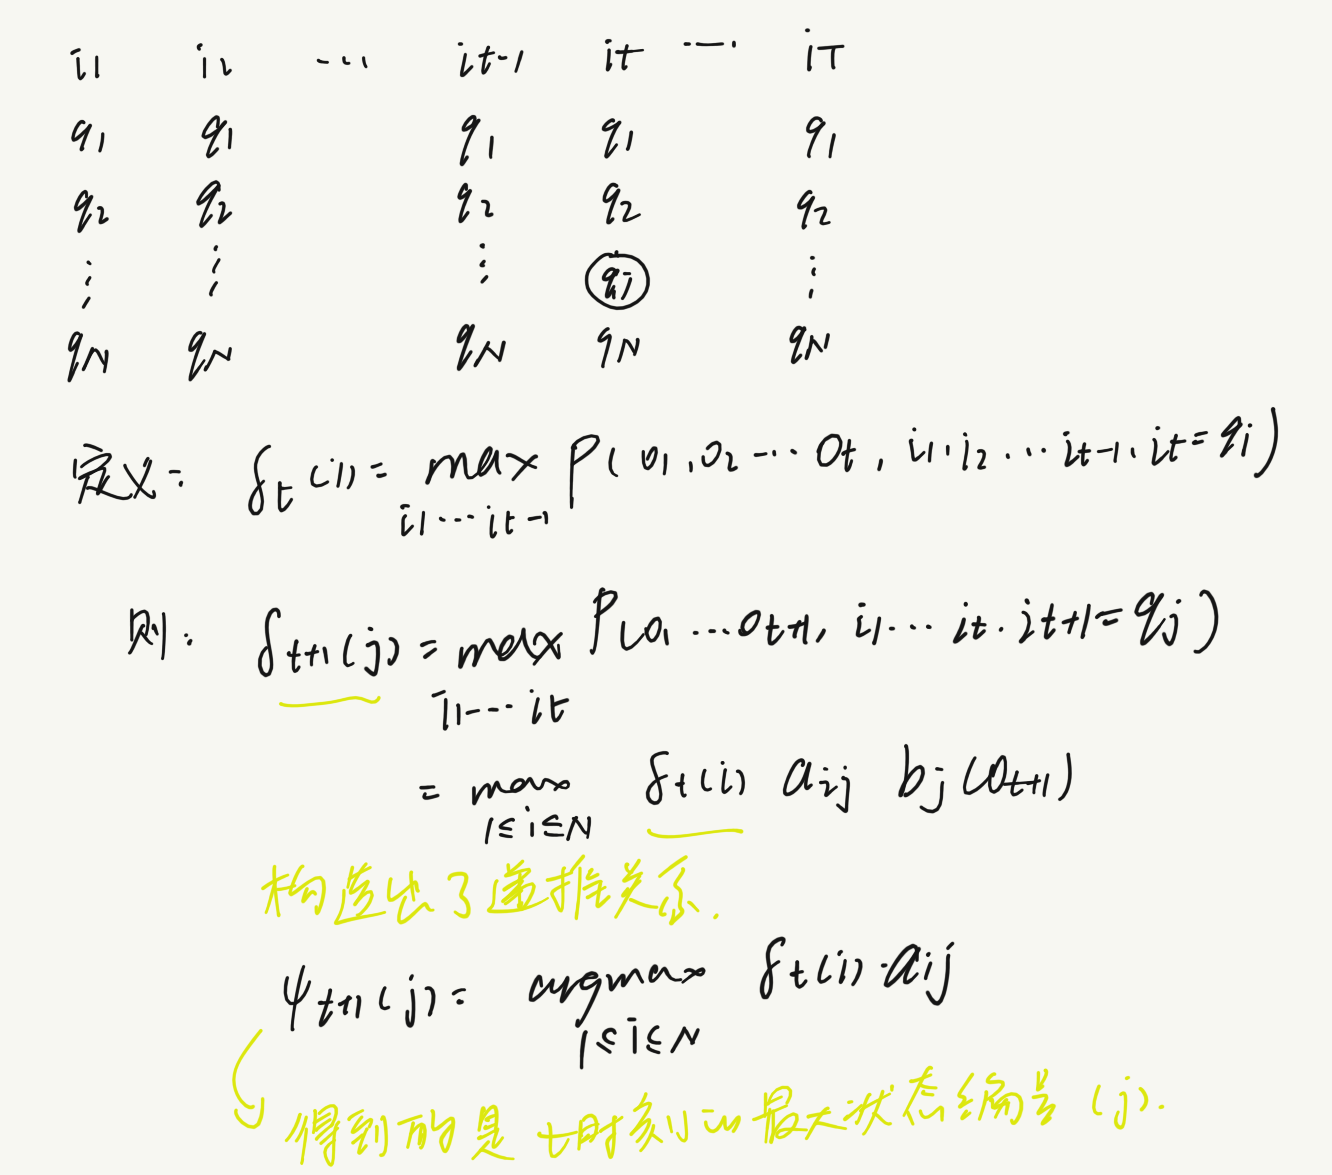 i1 i2 ... it-1 it ... iT
q1 q1 q1 q1 q1
q2 q2 q2 q2 q2
⋮ ⋮ ⋮ qj ⋮
qN qN qN qN qN
定义: δt(i) = max P(o1,o2...ot, i1,i2...it-1,it=qi)
i1...it-1
则: δt+1(j) = max P(o1...ot+1, i1...it.it+1=qj)
i1...it
= max δt(i) aij bj(ot+1)
1≤i≤N
构造出了递推关系.
ψt+1(j) = argmax δt(i)·aij
1≤i≤N
得到的是t时刻的最大状态编号(j).